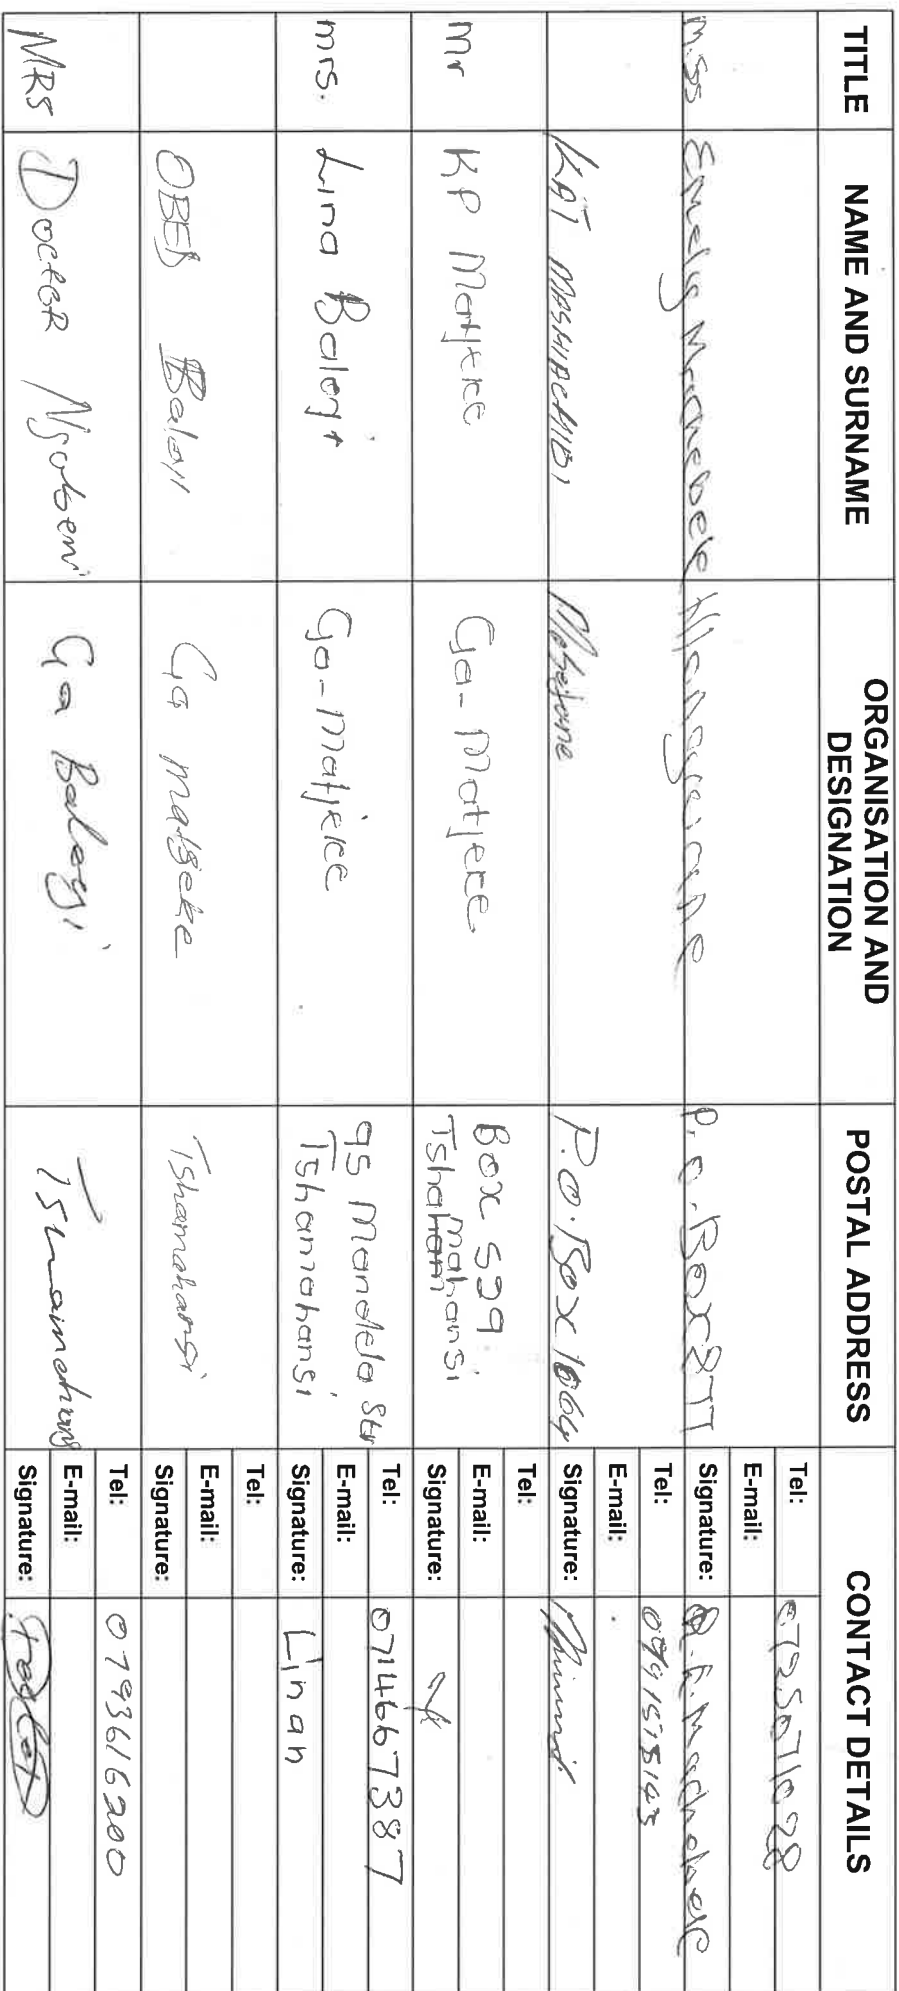 TITLE
NAME AND SURNAME
ORGANISATION AND DESIGNATION
POSTAL ADDRESS
CONTACT DETAILS
Miss
Emely
P.O. Box 877
Tel: 0725071028
E-mail:
Signature:
KAT
P.O. Box
Tel:
E-mail:
Signature:
Mr
KP Matjeke
Ga-Matjeke
Box 529
Mahansi
Tel:
E-mail:
Signature:
mrs.
Lina Baloyi
Ga-Matjeke
95 Mandela Str
Tshamahansi
Tel: 0714667387
E-mail:
Signature: Linah
OBED Baloyi
Ga matjeke
Tshamahansi
Tel:
E-mail:
Signature:
MRS
Docter Ngobeni
Ga Baloyi
Tel: 0793616200
E-mail:
Signature: